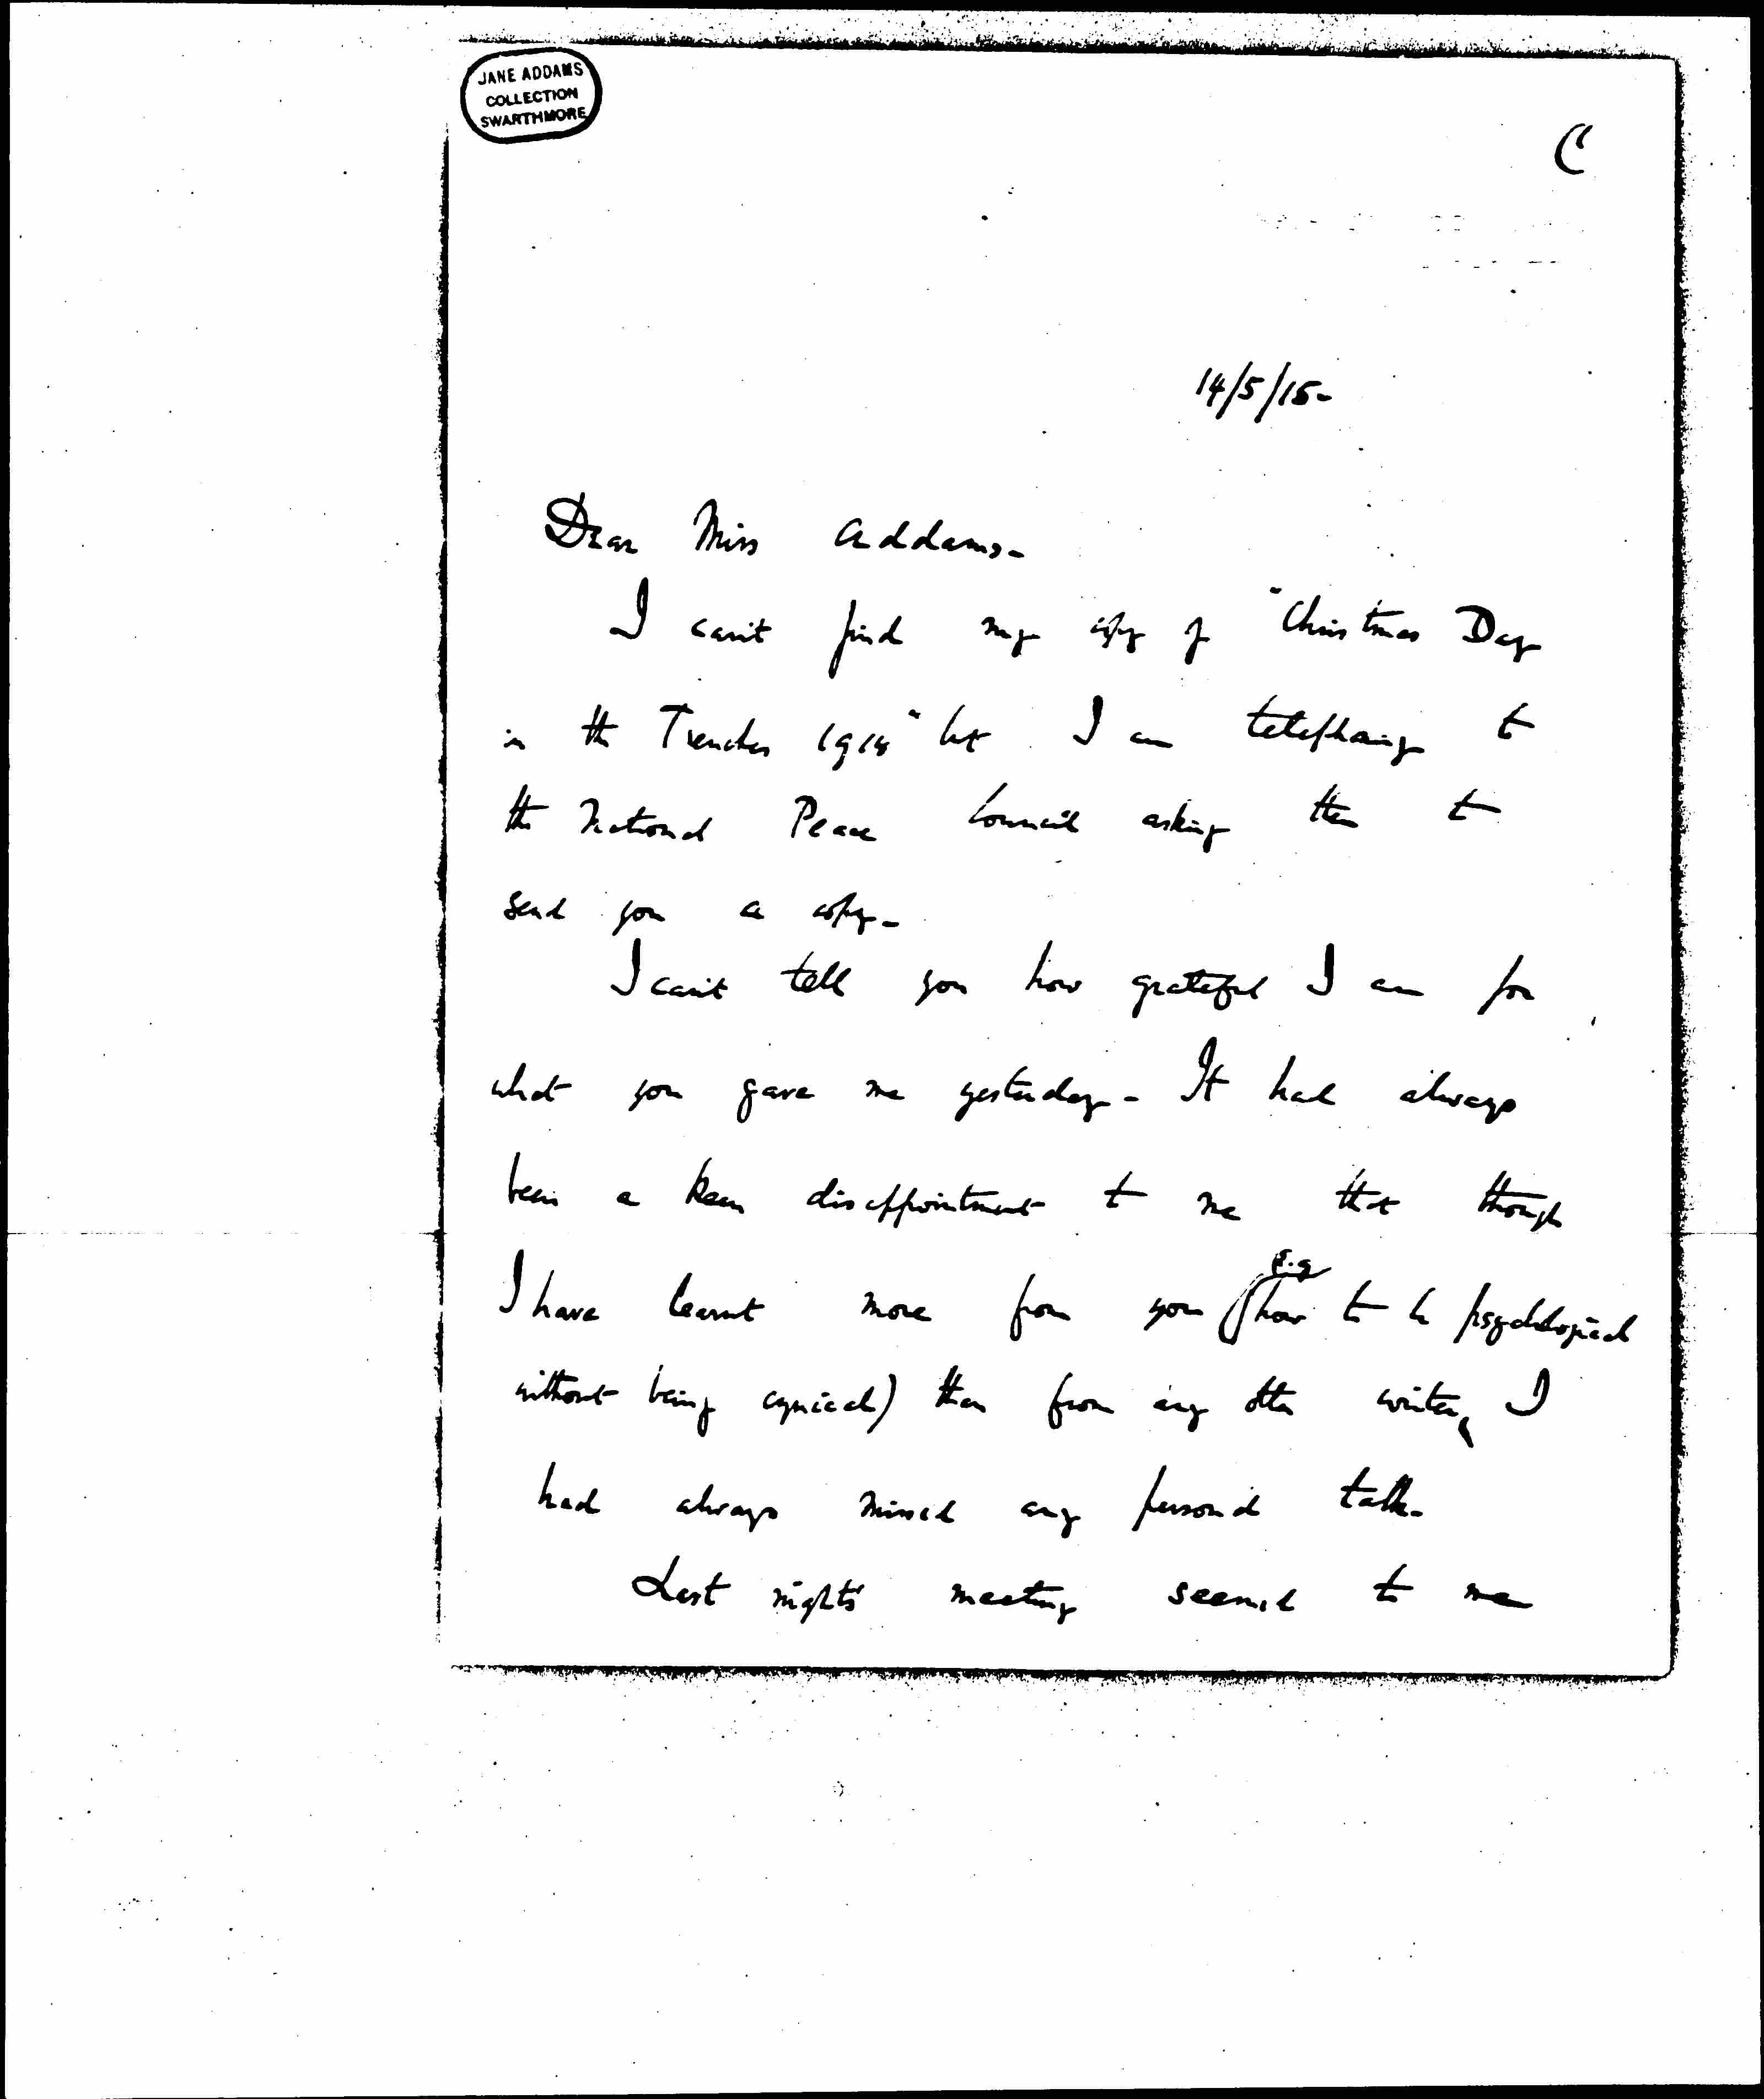 JANE ADDAMS
COLLECTION
SWARTHMORE
C
14/5/15-
Dear Miss Addams-
I can't find my copy of "Christmas Day
in the Trenches 1914" but I am telephoning to
the National Peace Council asking them to
send you a copy-
I can't tell you how grateful I am for
what you gave me yesterday- It had always
been a keen disappointment to me that though
I have learnt more from you (e.g. how to be psychological
without being cynical) than from any other writer, I
had always missed any personal talk-
Last night's meeting seemed to me